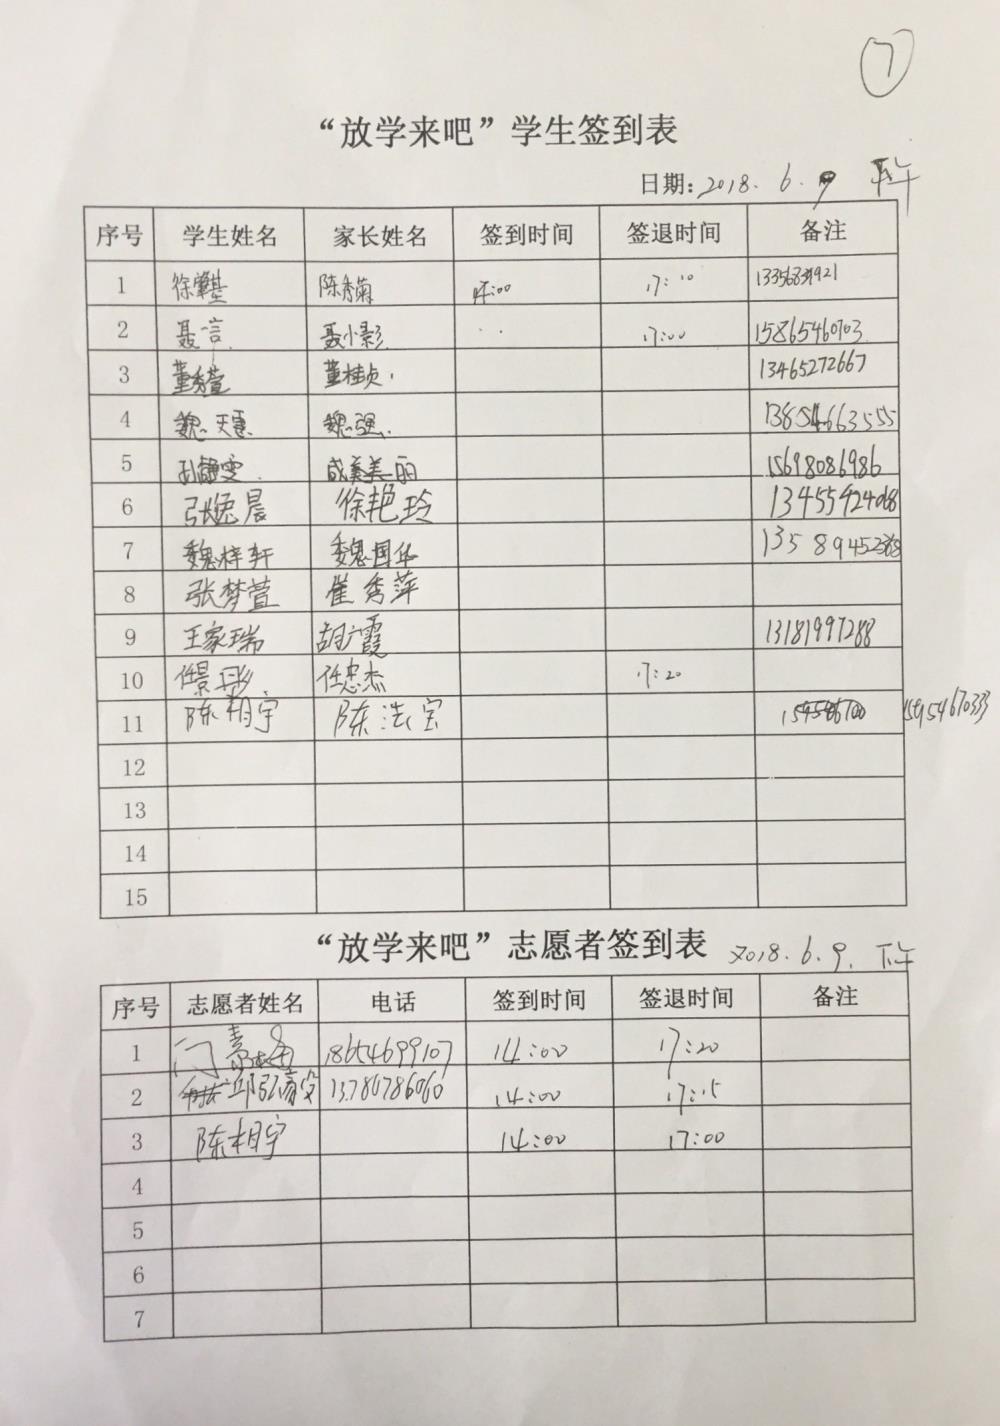 7
“放学来吧”学生签到表
日期: 2018. 6. 9 下午
序号 学生姓名 家长姓名 签到时间 签退时间 备注
1 陈秀菊 14:00 17:10
2 聂言 聂小影 17:00 15865460703
3 董桂贞 13465272667
4 魏天 魏强 13854663555
5 15698086986
6 张逸晨 徐艳玲
7 魏梓轩 魏国华
8 张梦萱 崔秀萍
9 王家瑞 胡广霞 13181997288
10 任景彤 任忠杰 17:20
11 陈相宇 陈法宝 15954670333
12
13
14
15
“放学来吧”志愿者签到表 2018. 6. 9. 下午
序号 志愿者姓名 电话 签到时间 签退时间 备注
1 门 18654699107 14:00 17:20
2 13780786060 14:00 17:15
3 陈相宇 14:00 17:00
4
5
6
7